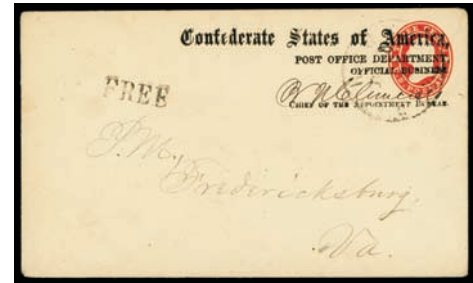 Confederate States of America,
POST OFFICE DEPARTMENT,
OFFICIAL BUSINESS
FREE
CHIEF OF THE APPOINTMENT BUREAU.
P.M.,
Fredericksburg,
Va.